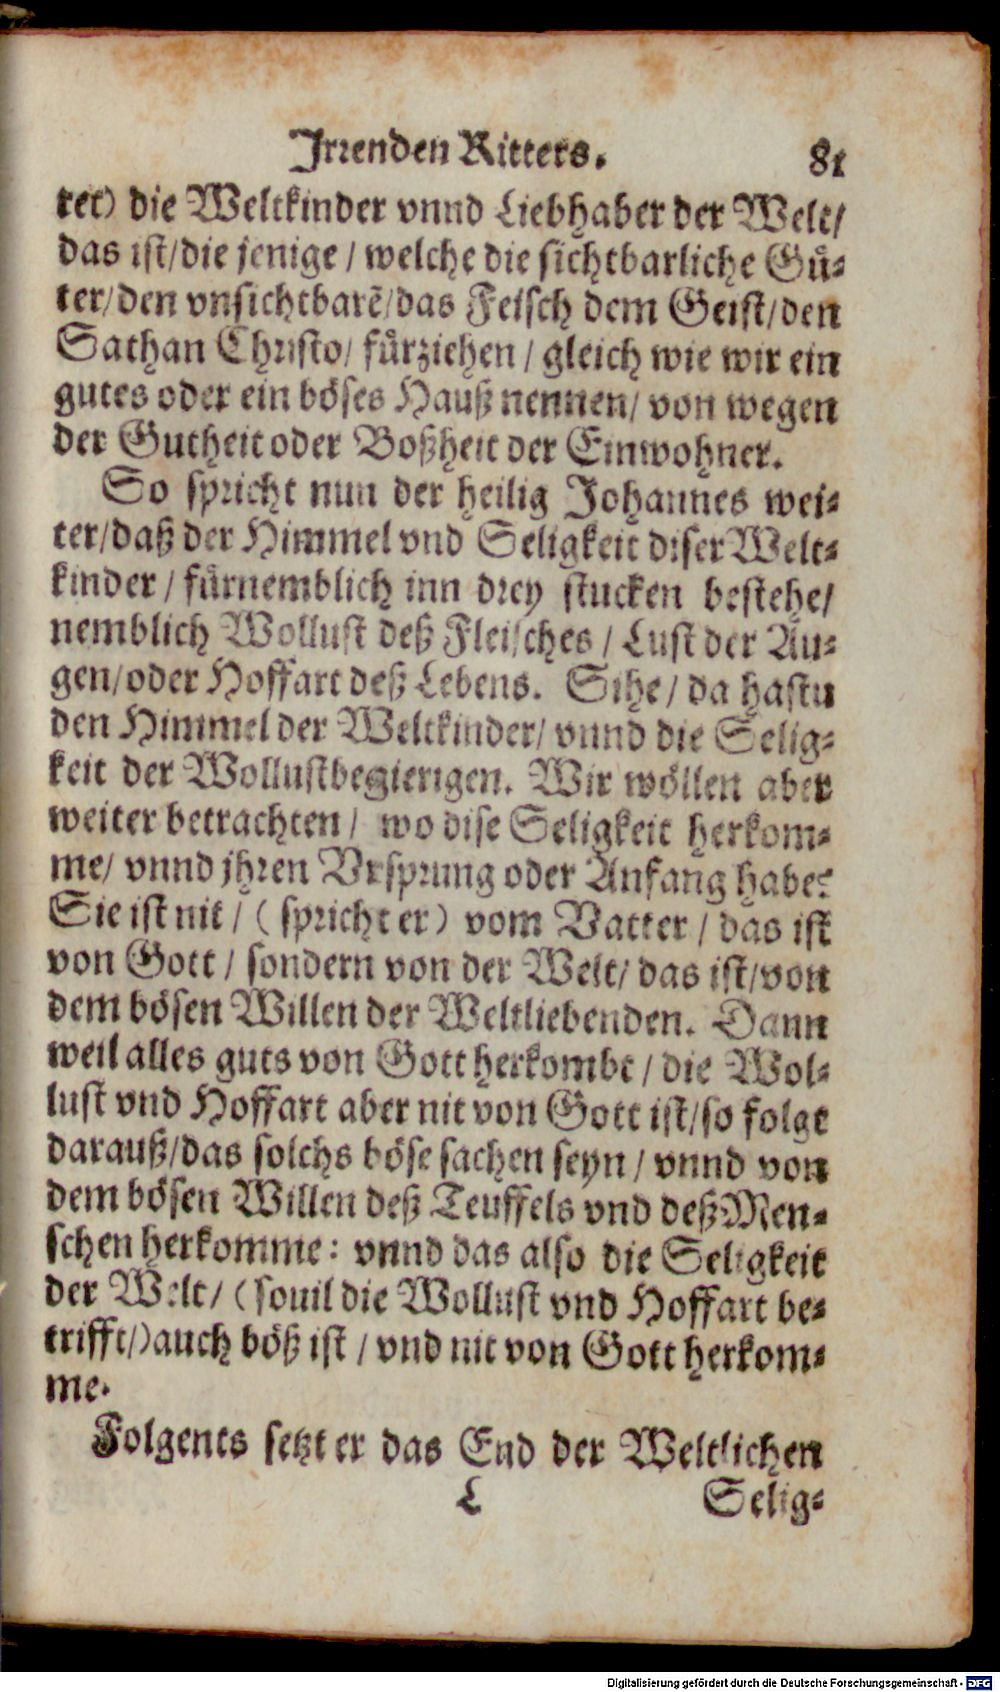 Irrenden Ritters. 81
tet) die Weltkinder vnnd Liebhaber der Welt/
das ist/die jenige / welche die sichtbarliche Gü-
ter/den vnsichtbarē/das Feisch dem Geist/den
Sathan Christo/ fürziehen / gleich wie wir ein
gutes oder ein böses Hauß nennen/ von wegen
der Gutheit oder Boßheit der Einwohner.
So spricht nun der heilig Johannes wei-
ter/daß der Himmel vnd Seligkeit diser Welt-
kinder / fürnemblich inn drey stucken bestehe/
nemblich Wollust deß Fleisches / Lust der Au-
gen/oder Hoffart deß Lebens. Sihe/ da hastu
den Himmel der Weltkinder/ vnnd die Selig-
keit der Wollustbegierigen. Wir wöllen aber
weiter betrachten / wo dise Seligkeit herkom-
me/ vnnd jhren Vrsprung oder Anfang habe?
Sie ist nit / ( spricht er) vom Vatter / das ist
von Gott / sondern von der Welt/ das ist/von
dem bösen Willen der Weltliebenden. Dann
weil alles guts von Gott herkombt / die Wol-
lust vnd Hoffart aber nit von Gott ist/so folgt
darauß/das solchs böse sachen seyn / vnnd von
dem bösen Willen deß Teuffels vnd deß Men-
schen herkomme: vnnd das also die Seligkeit
der Welt/ (souil die Wollust vnd Hoffart be-
trifft/)auch böß ist / vnd nit von Gott herkom-
me.
Folgents setzt er das End der Weltlichen
L Selig-
Digitalisierung gefördert durch die Deutsche Forschungsgemeinschaft - DFG